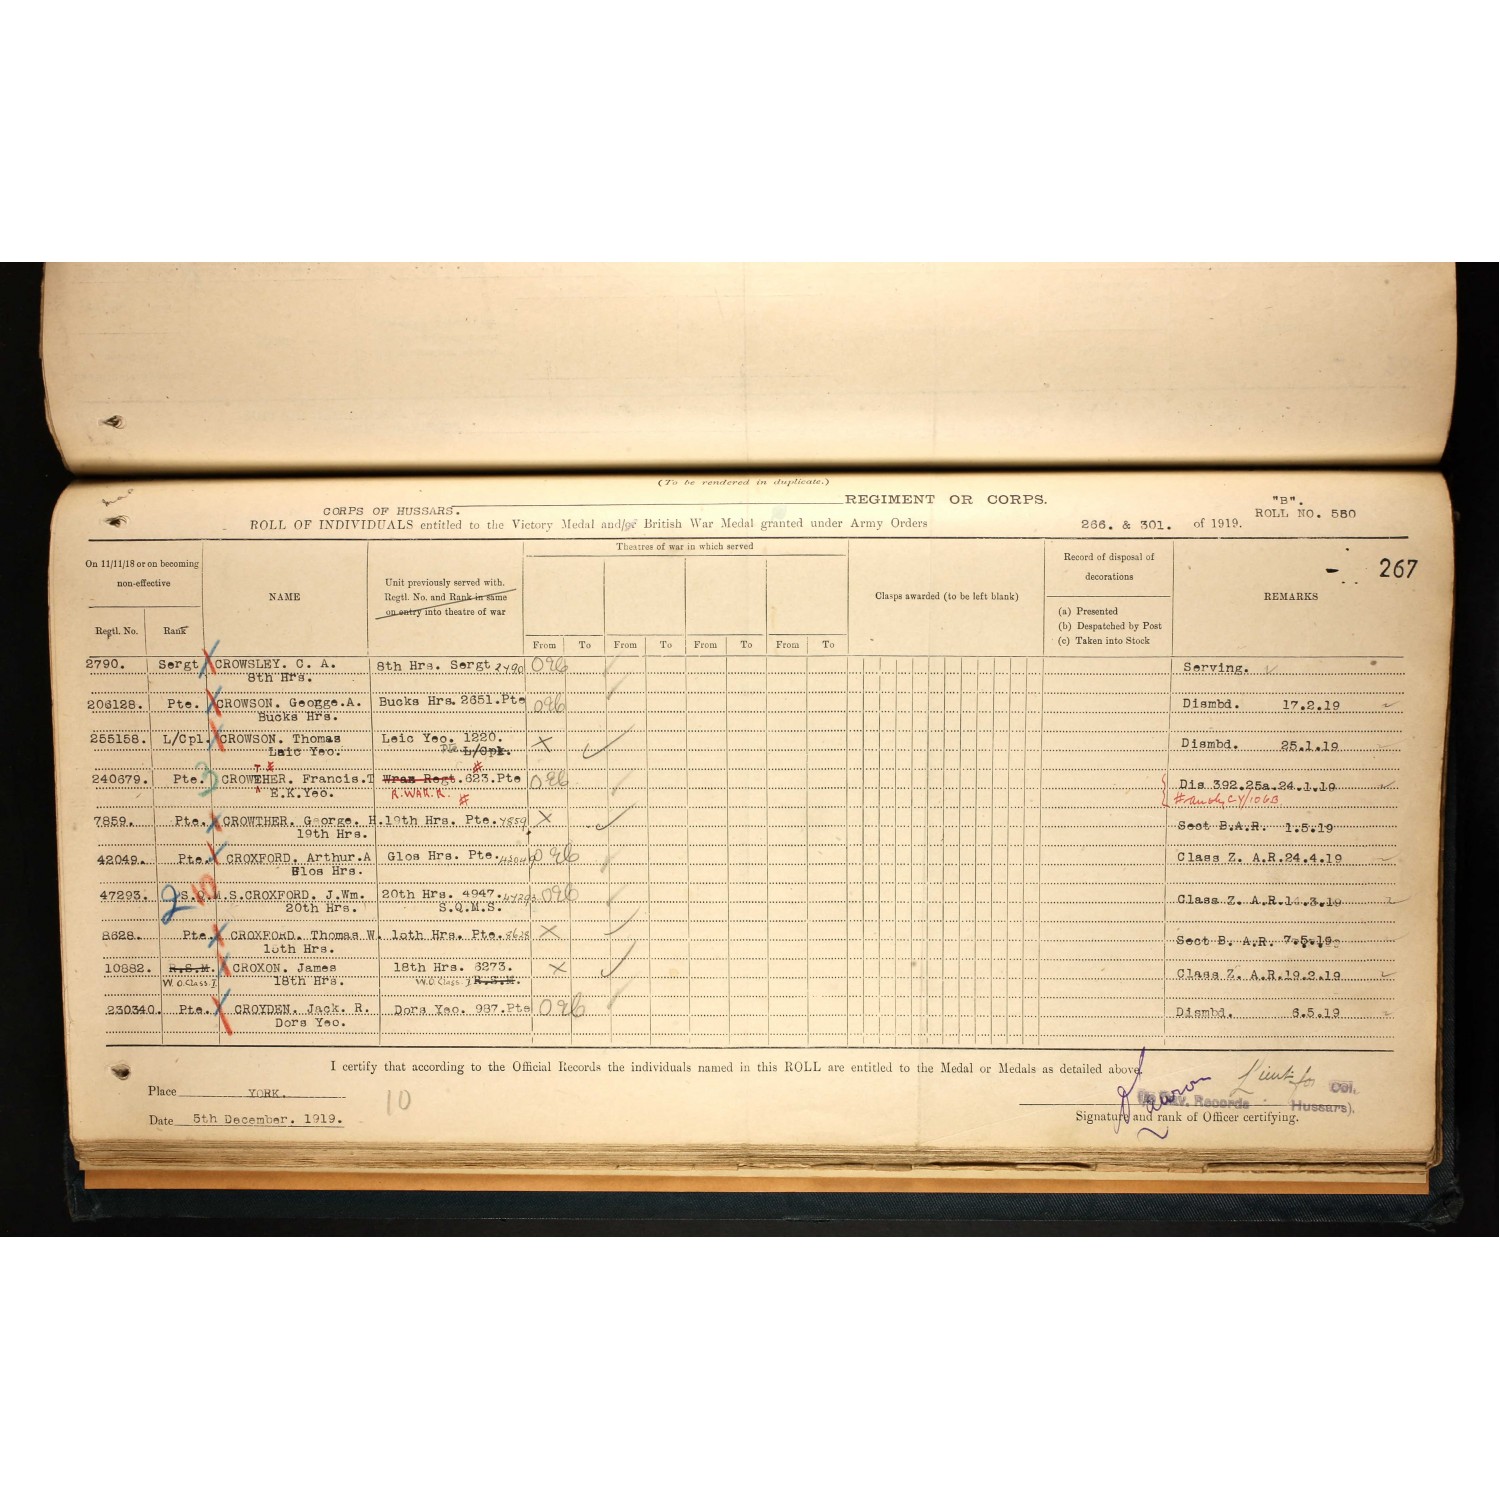 (To be rendered in duplicate.)
CORPS OF HUSSARS. REGIMENT OR CORPS. "B".
ROLL NO. 580
ROLL OF INDIVIDUALS entitled to the Victory Medal and/or British War Medal granted under Army Orders 266. & 301. of 1919.
267
On 11/11/18 or on becoming non-effective
Regtl. No. Rank
NAME
Unit previously served with. Regtl. No. and Rank in same on entry into theatre of war
Theatres of war in which served
From To From To From To From To
Clasps awarded (to be left blank)
Record of disposal of decorations
(a) Presented
(b) Despatched by Post
(c) Taken into Stock
REMARKS
2790. Sergt CROWSLEY. C. A. 8th Hrs. Sergt 2790 Serving.
8th Hrs.
206128. Pte. CROWSON. George.A. Bucks Hrs. 2651.Pte Dismbd. 17.2.19
Bucks Hrs.
255158. L/Cpl. CROWSON. Thomas Leic Yeo. 1220. X Dismbd. 25.1.19
Leic Yeo. Pte L/Cpl.
240679. Pte. 3 CROWTHER. Francis.T Wran Regt.623.Pte Dis 392.25a.24.1.19
E.K.Yeo. R.WAR.R.
7859. Pte. CROWTHER. George. H. 19th Hrs. Pte. 7859 X Sect B.A.R. 1.5.19
19th Hrs.
42049. Pte. CROXFORD. Arthur.A Glos Hrs. Pte. Class Z. A.R.24.4.19
Glos Hrs.
47293. 2 S.Q.M.S.CROXFORD. J.Wm. 20th Hrs. 4947. Class Z. A.R.
20th Hrs. S.Q.M.S.
8628. Pte. CROXFORD. Thomas W. 15th Hrs. Pte. 8628 X Sect B. A.R. 7.5.19
15th Hrs.
10882. R.S.M. CROXON. James 18th Hrs. 6273. X Class Z. A.R.19.2.19
W.O.Class.I 18th Hrs. W.O Class.I R.S.M.
230340. Pte. CROYDEN. Jack. R. Dors Yeo. 987.Pte Dismbd. 6.5.19
Dors Yeo.
I certify that according to the Official Records the individuals named in this ROLL are entitled to the Medal or Medals as detailed above.
Place YORK. 10
Lieut for Col.
Records Hussars).
Date 5th December. 1919. Signature and rank of Officer certifying.